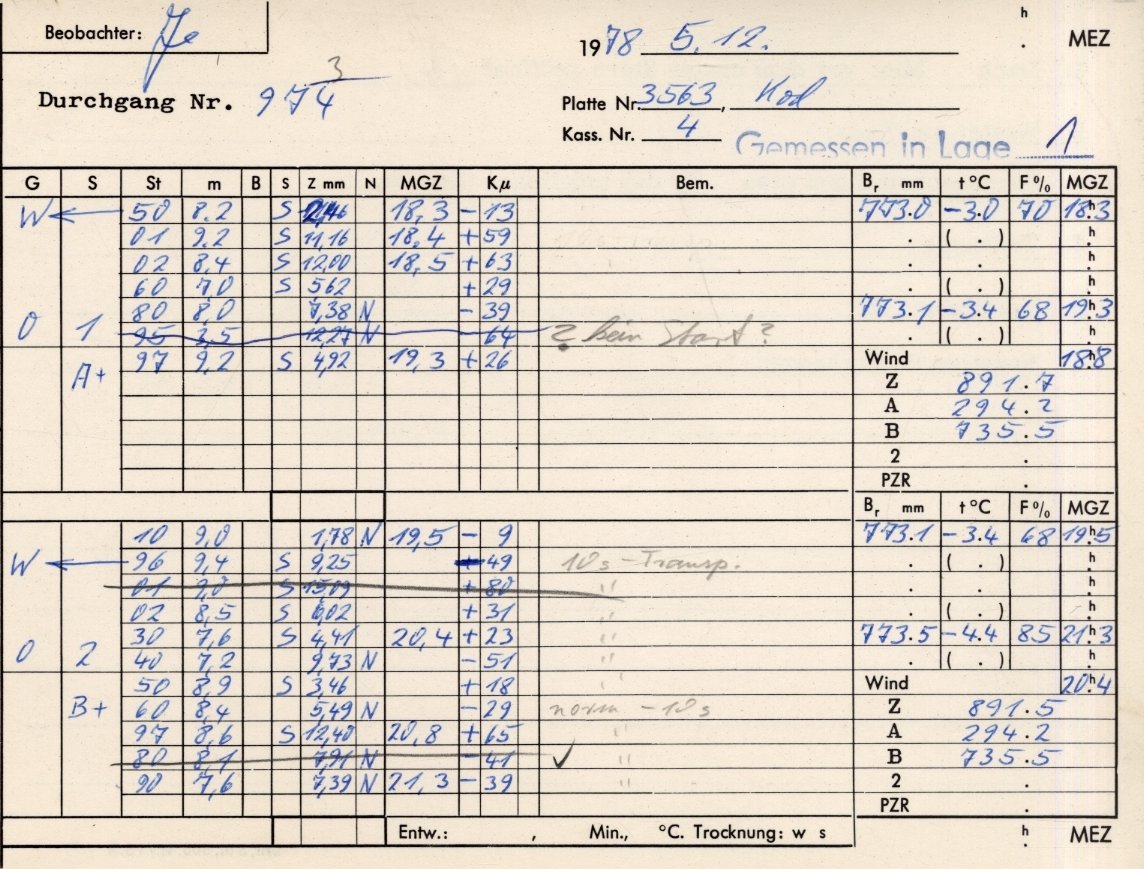 Beobachter: Je
h
. MEZ
1978 5.12.
3
Durchgang Nr. 974
Platte Nr. 3563, Kod
Kass. Nr. 4
Gemessen in Lage 1
G S St m B S Z mm N MGZ Kµ Bem. Br mm t °C F % MGZ
W 50 8.2 S 2,46 18,3 - 13 773.0 -3.0 70 18.3 h
01 9.2 S 11,16 18,4 + 59 . ( . ) h
02 8,4 S 12,00 18,5 + 63 . . h
60 7,0 S 5,62 + 29 . ( . ) h
80 8,0 7,38 N - 39 773.1 -3.4 68 19.3 h
0 1 95 3,5 12,27 N - 64 ? kein Start ? . ( . ) h
A+ 97 9,2 S 4,92 19,3 + 26 Wind 18.8 h
Z 891.7
A 294.2
B 735.5
2 .
PZR .
Br mm t °C F % MGZ
10 9,0 1,78 N 19,5 - 9 773.1 -3.4 68 19.5 h
W 96 9,4 S 9,25 + 49 10s-Transp. . ( . ) h
01 9,0 S 15,09 + 80 " . . h
02 8,5 S 6,02 + 31 " . ( . ) h
30 7,6 S 4,41 20,4 + 23 " 773.5 -4.4 85 21.3 h
0 2 40 7,2 9,73 N - 51 " . ( . ) h
50 8,9 S 3,46 + 18 " Wind 20.4 h
B+ 60 8,4 5,49 N - 29 norm -10s Z 891.5
97 8,6 S 12,40 20,8 + 65 " A 294.2
80 8,1 7,91 N - 41 ✓ " B 735.5
90 7,6 7,39 N 21,3 - 39 " 2 .
PZR .
Entw.: , Min., °C. Trocknung: w s
h
. MEZ